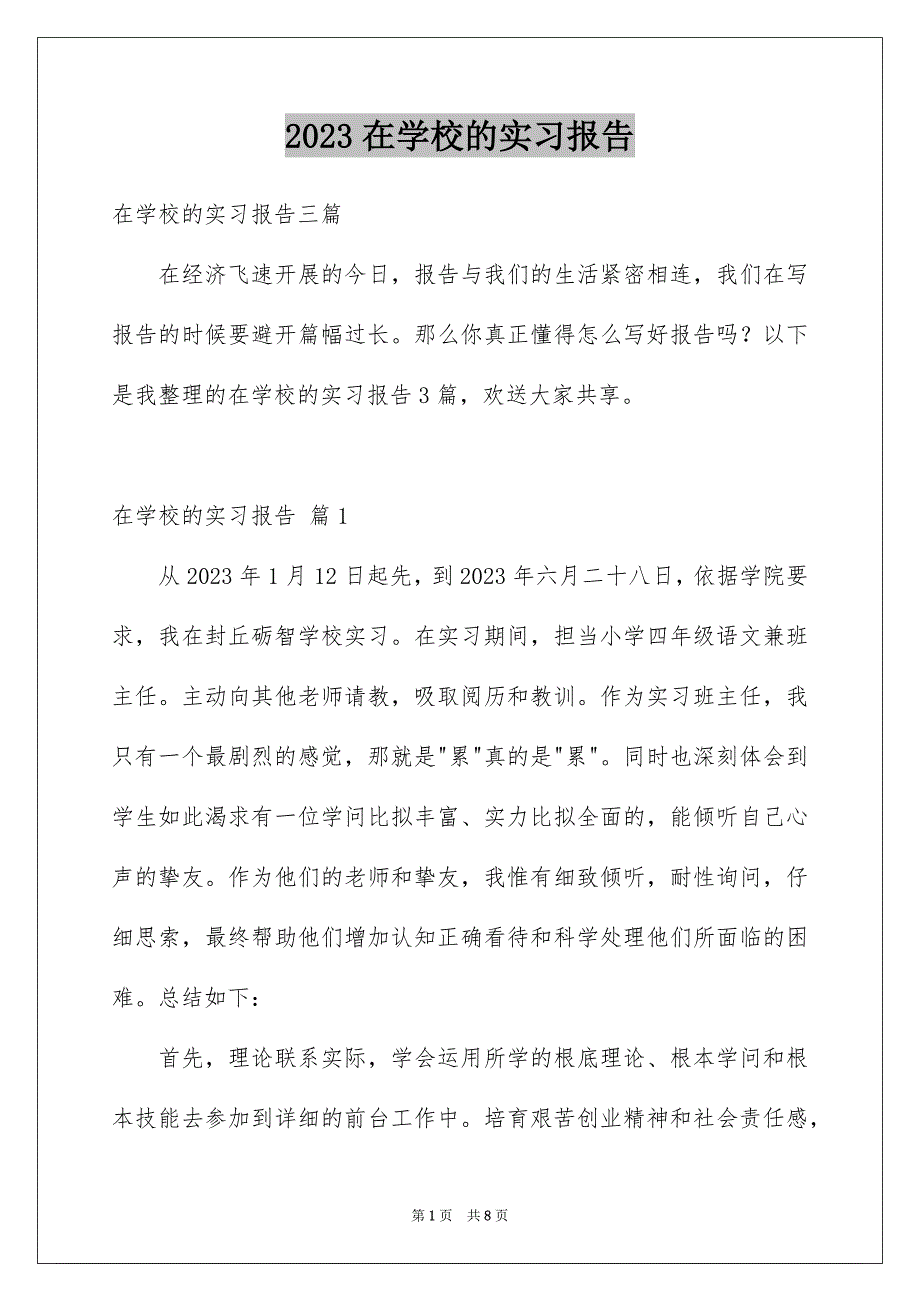 2023在学校的实习报告
在学校的实习报告三篇
在经济飞速开展的今日，报告与我们的生活紧密相连，我们在写
报告的时候要避开篇幅过长。那么你真正懂得怎么写好报告吗？以下
是我整理的在学校的实习报告3篇，欢送大家共享。
在学校的实习报告 篇1
从2023年1月12日起先，到2023年六月二十八日，依据学院要
求，我在封丘砺智学校实习。在实习期间，担当小学四年级语文兼班
主任。主动向其他老师请教，吸取阅历和教训。作为实习班主任，我
只有一个最剧烈的感觉，那就是"累"真的是"累"。同时也深刻体会到
学生如此渴求有一位学问比拟丰富、实力比拟全面的，能倾听自己心
声的挚友。作为他们的老师和挚友，我惟有细致倾听，耐性询问，仔
细思索，最终帮助他们增加认知正确看待和科学处理他们所面临的困
难。总结如下：
首先，理论联系实际，学会运用所学的根底理论、根本学问和根
本技能去参加到详细的前台工作中。培育艰苦创业精神和社会责任感，
第1页 共8页